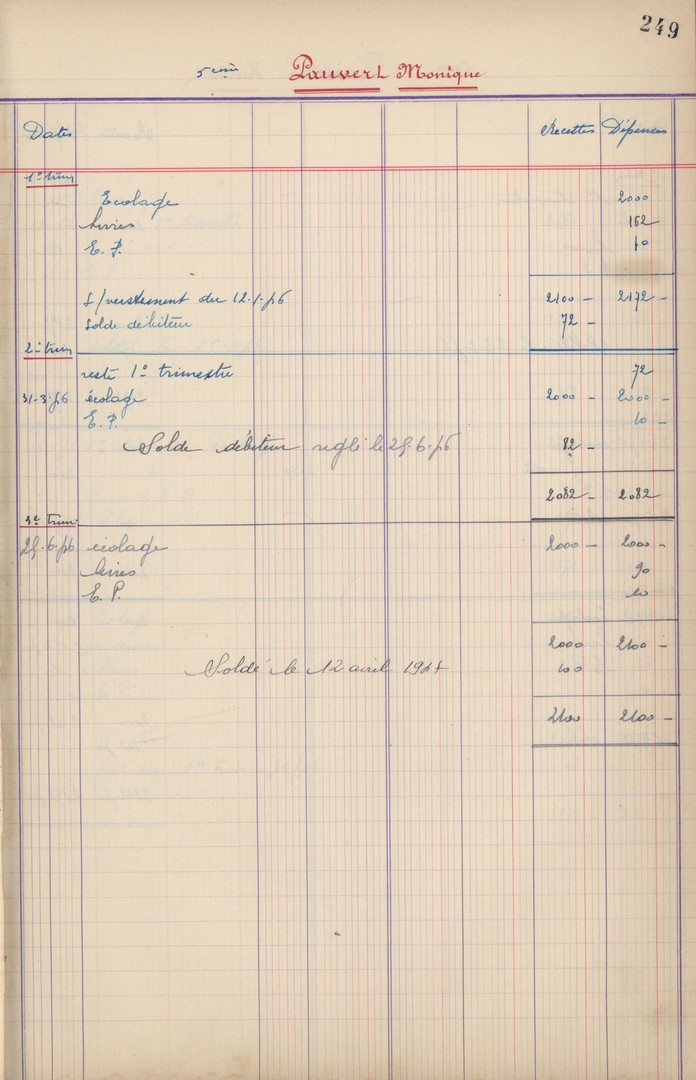 249
5ème Pauvert Monique
Dates Recettes Dépenses
1er trim
Ecolage 2000
livres 162
E. P. 10
s/versement du 12-1-56 2100 - 2172 -
solde débiteur 72 -
2e trim
reste 1er trimestre 72
31-3-56 écolage 2000 - 2000 -
E. P. 10 -
Solde débiteur réglé le 25-6-56 82 -
2082 - 2082
3e trim
25-6-56 écolage 2000 - 2000 -
livres 90
E. P. 10
2000 2100 -
Soldé le 12 avril 100
2100 2100 -